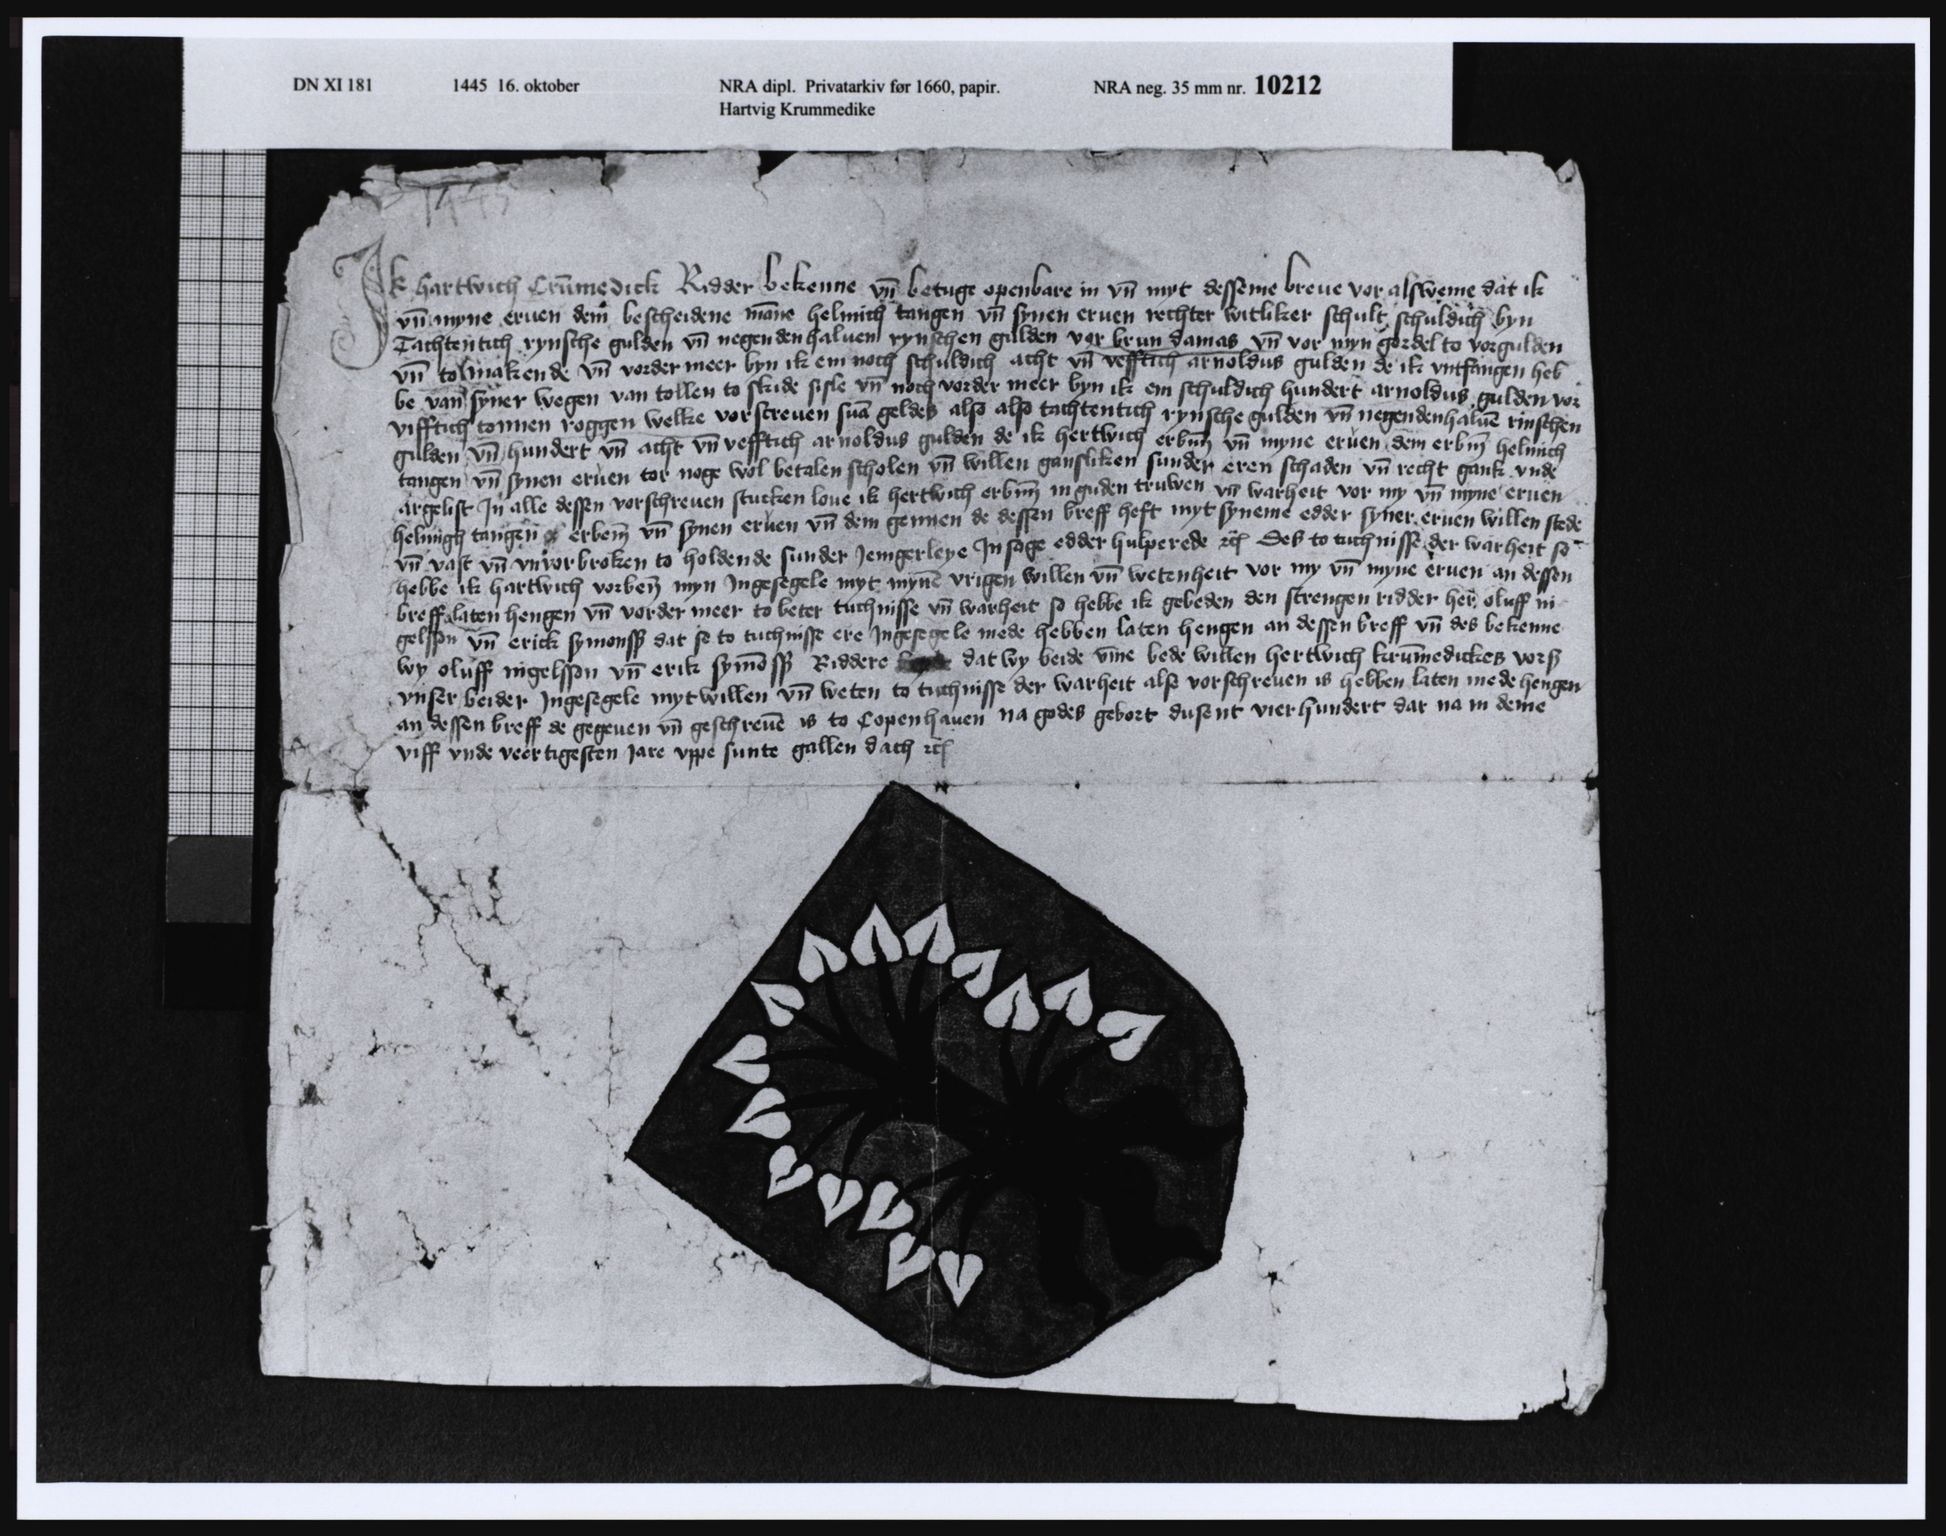 DN XI 181 1445 16. oktober NRA dipl. Privatarkiv før 1660, papir. NRA neg. 35 mm nr. 10212
Hartvig Krummedike
1445
Ik hartwich Crūmedick Ridder bekenne vn̄ betuge openbare in vn̄ myt desseme breue vor alsweme dat ik
vn̄ myne eruen dem bescheidene māne helmich tangen vn̄ synen eruen rechter witliker schult schuldich byn
Tachtentich rynsche gulden vn̄ negendenhaluen rynschen gulden vor brun damas vn̄ vor myn gordel to vorgulden
vn̄ to makende vn̄ vorder meer byn ik em noch schuldich acht vn̄ vefftich arnoldus gulden de ik vntfangen heb
be van syner wegen van tollen to skide sisle vn̄ noch vorder meer byn ik em schuldich hundert arnoldus gulden vor
vifftich tonnen roggen welke vorscreuen suā geldes also also tachtentich rynsche gulden vn̄ negendenhaluē rinschen
gulden vn̄ hundert vn̄ acht vn̄ vefftich arnoldus gulden de ik hertwich erbn̄ vn̄ myne eruen dem erbn̄ helmich
tangen vn̄ synen eruen tor noge wol betalen scholen vn̄ willen gansliken sunder eren schaden vn̄ recht gank vnde
argelist In alle dessen vorschreuen stucken loue ik hertwich erbn̄ in guden truwen vn̄ warheit vor my vn̄ myne eruen
helmigh tangen erben̄ vn̄ synen eruen vn̄ dem gennen de dessen breff heft myt syneme edder syner eruen willen stede
vn̄ vast vn̄ vnvorbroken to holdende sunder Jengerleye Insage edder hulperede ꝛc̄ Des to tuchnisse der warheit so
hebbe ik hartwich vorben̄ myn Ingesegele myt mynē vrigen willen vn̄ wetenheit vor my vn̄ myne eruen an dessen
breff laten hengen vn̄ vorder meer to beter tuchnisse vn̄ warheit so hebbe ik gebeden den strengen ridder her oluff ni
gelsson vn̄ erick symonsß dat se to tuchnisse ere Ingesegele mede hebben laten hengen an dessen breff vn̄ des bekenne
wy oluff nigelsson vn̄ erik symōsß Riddere dat wy beide vm̄e bede willen hertwich krūmedickes vorß
vnser beider Ingesegele myt willen vn̄ weten to tuchnisse der warheit alse vorschreuen is hebben laten mede hengen
an dessen breff de gegeuen vn̄ geschreuē is to Copenhauen na godes gebort dusent vierhundert dar na in deme
viff vnde veertigesten Jare vppe sunte gallen dach ꝛc̄